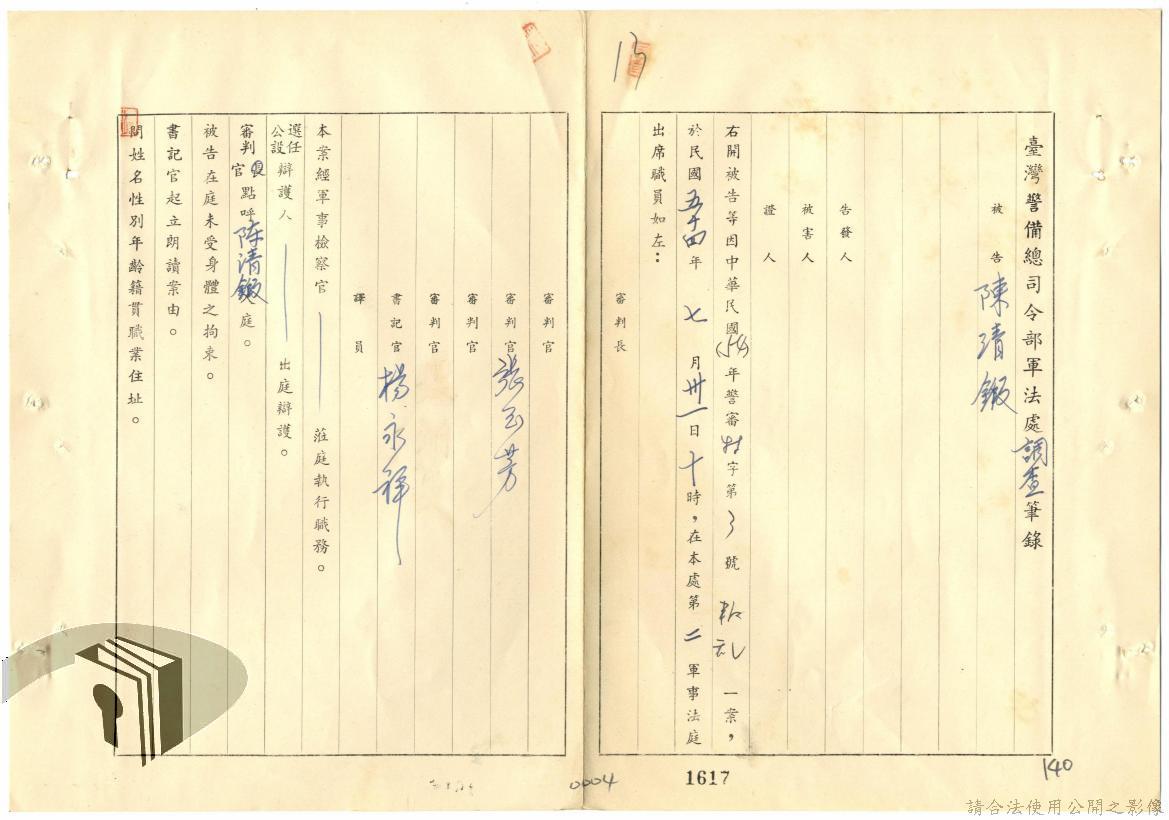 臺灣警備總司令部軍法處調查筆錄
被告 陳清鍛
告發人
被害人
證人
右開被告等因中華民國(54)年警審特字第3號叛乱一案，
於民國五十四年七月卅一日十時，在本處第二軍事法庭
出席職員如左：
審判長
審判官
審判官 張玉芳
審判官
審判官
書記官 楊永祥
譯員
本案經軍事檢察官 蒞庭執行職務。
選任
公設辯護人 出庭辯護。
審判官點呼陳清鍛庭。
被告在庭未受身體之拘束。
書記官起立朗讀案由。
問姓名性別年齡籍貫職業住址。
13
0004
1617
140
請合法使用公開之影像